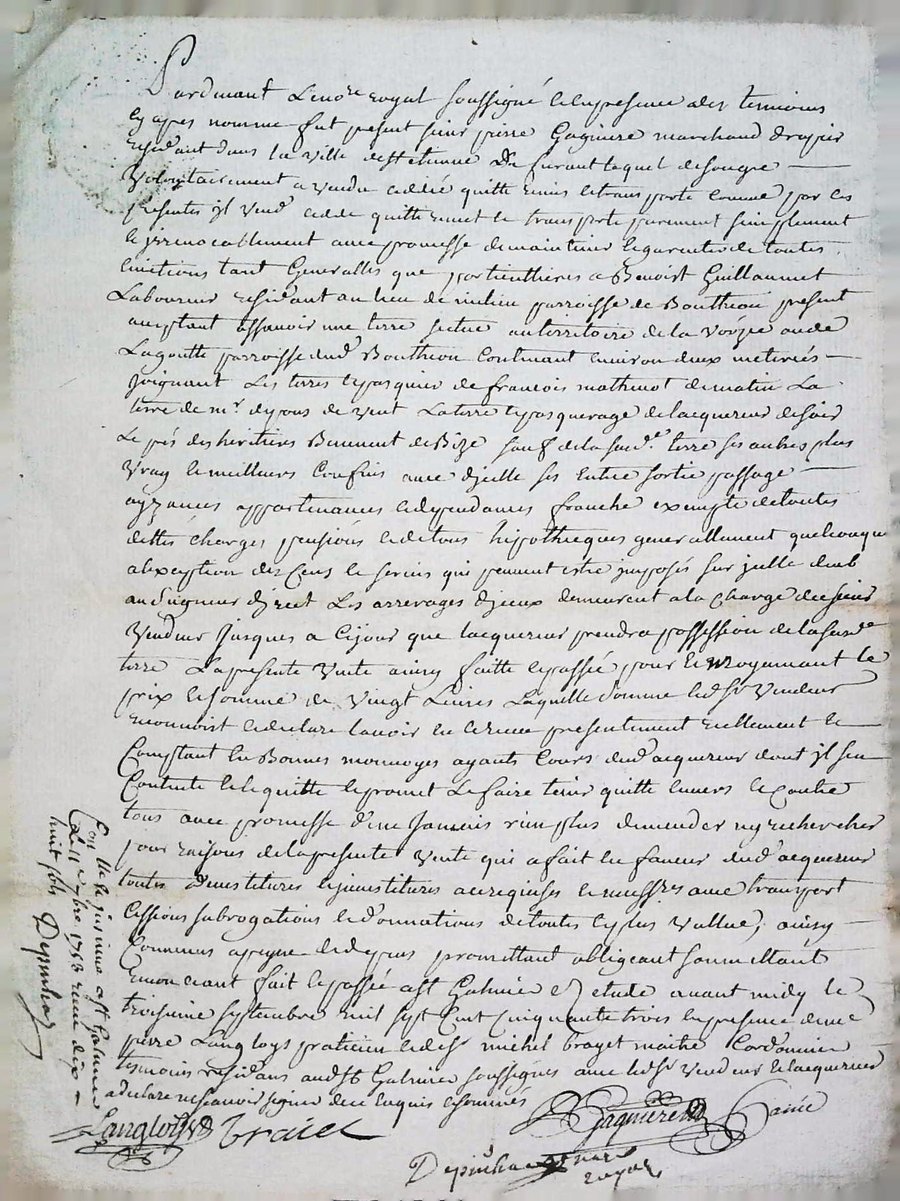 Pardevant Le no.re royal soussigné et en presence des temoins
cy apres nommes fut present sieur pierre Gagniere marchand drapier
residant dans la ville de st etienne de furant lequel de son gre
volontairement a vendu cedde quitte remis et transporte comme par ces
presentes il vend cedde quitte remet et transporte purement simplement
et irrevocablement avec promesse de maintenir et garentir de toutes
evictions tant Generalles que particullieres a Benoist Guillaumet
Laboureur residant au lieu de parroisse de Boutheon present
acceptant assavoir une terre scitue au territoire de la ou de
Lagoutte parroisse dud Boutheon Contenant environ deux meterées
Joignant Les terres et pasquier de francois mathevot de matin La
terre de mr de vent La terre et pasquerage de lacquereur de soir
Le prés des heritiers de Bize sauf de la susd.e terre ses autres plus
vray et meilleurs Confins avec d'jcelle ses Entrée sortie passage
ayzances appartenances et dependances franche exempte de toutes
dettes charges pensions et de tous hipotheques generallement quelconque
a lexception des Cens et servis qui peuvent estre jmposés sur jcelle deub
au Seigneur direct Les arrerages djceux demeurent a la Charge dud sieur
Vendeur Jusques a Cejour que lacquereur prendra possession de la susd.e
terre La presente Vente ainsy faitte et passée pour et moyennant le
prix et somme de Vingt Livres Laquelle somme led sr Vendeur
reconnoist et declare lavoir eu et receue presentement reellement et
Comptant en Bonnes monnoyes ayants Cours dud acquereur dont jl sen
Contente et le quitte et promet Le faire tenir quitte envers et Contre
tous avec promesse den Jamais rien plus demander ny rechercher
pour raisons de la presente Vente qui a fait en faveur dud acquereur
toutes devestitures et jnvestitures et avec transport
Cessions subrogations et donnations de toutes et plus Vallue, ainsy
Convenu a peyne de depens promettant obligeant soumettant
renonceant fait et passée a st Galmier étude avant midy le
troisieme septembre mil sept Cent Cinquante trois en presence de me
pierre Langloys praticien et de sr michel brayet maitre Cordonnier
temoins residans aud st Galmier soussignés avec led sr Vendeur et lacquereur
a declare ne scavoir signer de ce enquis et sommés
Langlois Braiet Gagniere
Depinhac no.re
royal
Con.lle et jnsinué a st Galmier
Le 11e 7bre 1753 receu dix
huit sols Depinhac